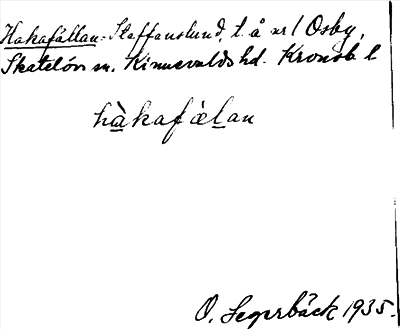 Hakafällan, Staffanslund, t. å nr 1 Osby,
Skatelöv sn. Kinnevalds hd. Kronob. l
hàkafæ̀lan
O. Segerbäck 1935.